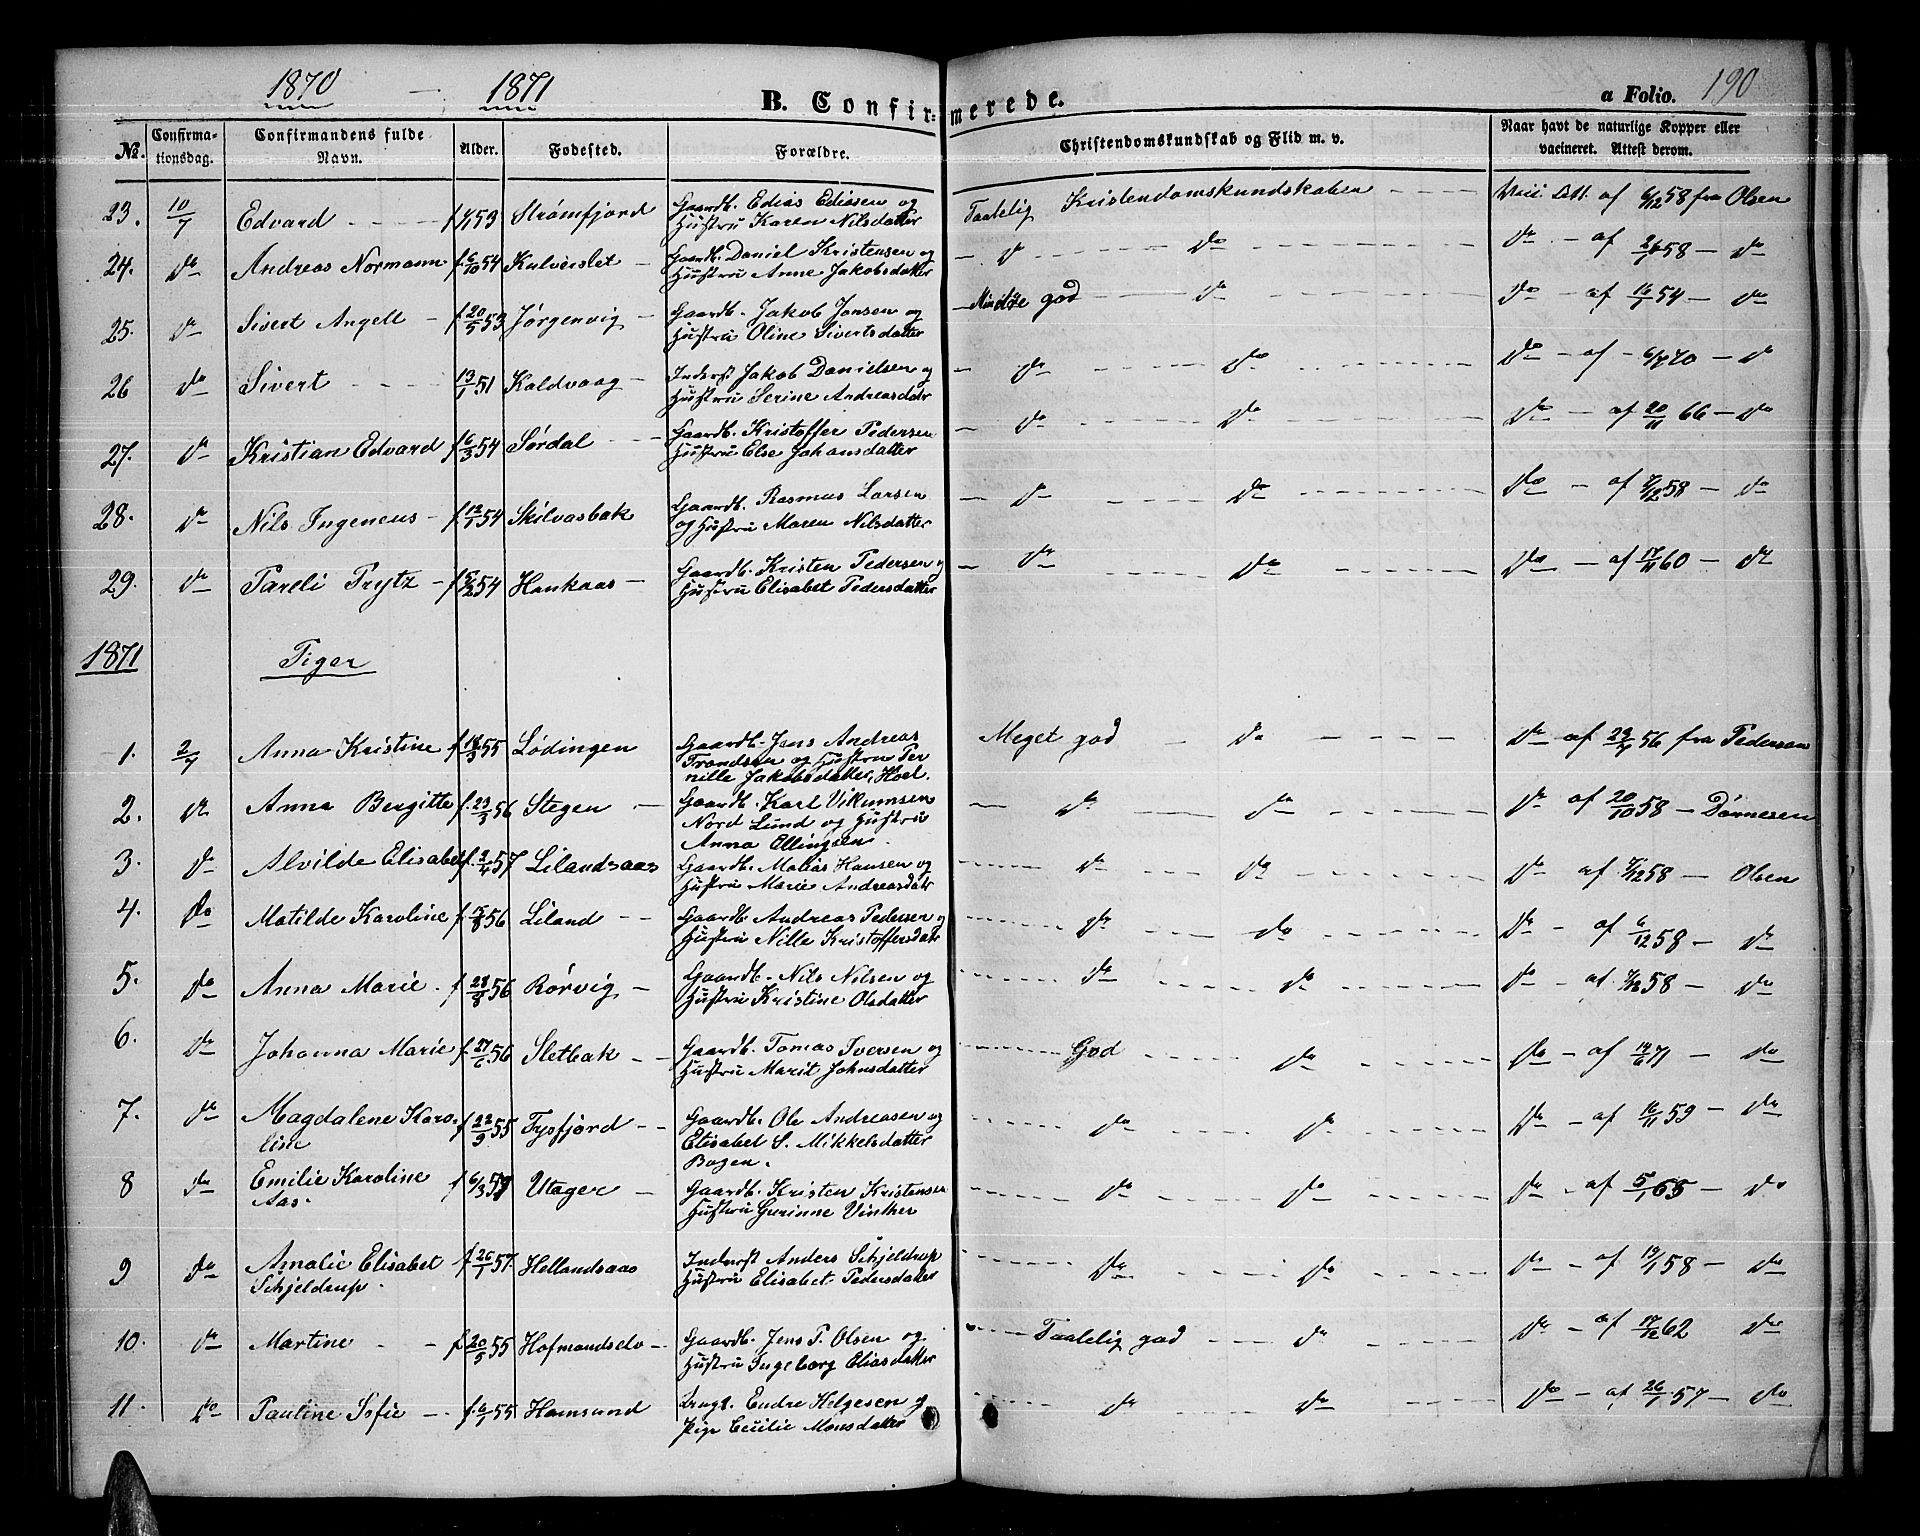 1870 - 1871
B. Confirmerede.
a Folio. 190
No. Confirmationsdag. Confirmandens fulde Navn. Alder. Fødested. Forældre. Christendomskundskab og Flid m. v. Naar havt de naturlige Kopper eller vacineret. Attest derom.
23. 10/7 Edvard 53 Strømfjord Gaardb. Edias Ediasen og Hustru Karen Nilsdatter Taalelig Kristendomskundskaben Att. af 6/12 58 fra Olsen
24. do Andreas Normann f. 6/10 54 Kulverslet Gaardb. Daniel Kristensen og Hustru Anne Jakobsdatter do do do - af 58 - do
25. do Sivert Angell f. 20/5 53 Jørgenvig Gaardb. Jakob Jonsen og Hustru Oline Sivertsdatter Mindre god do do - af 16/7 54 - do
26 do Sivert 13/1 51 Kaldvaag Inderst Jakob Danielsen og Hustru Serine Andreasdatr do do do - af 6/7 70 - do
27. do Kristian Edvard f. 6/3 54 Sørdal Gaardb. Kristoffer Pedersen Hustru Else Johansdatter do do do - af 20/11 66 - do
28. do Nils Ingeneus f. 12/1 54 Skilvasbak Gaardb. Rasmus Larsen og Hustru Maren Nilsdatter do do do - af 7/12 58 - do
29. do Pareli Prytz f. 5/2 54 Hankaas Gaardb. Kristen Pedersen og Hustru Elisabet Pedersdatter do do do - af 17/11 60 - do
1871 Piger
1. 2/7 Anna Kristine f. 18/3 55 Lødingen Gaardb. Jens Andreas Trondsen og Hustru Pernille Jakobsdatter, Hoel. Meget god do do af 29/7 56 fra Pedersen
2. do Anna Bergitte f. 23/3 56 Stegen Gaardb. Karl Vikumsen Nord Lund og Hustru Anna Ellingsen. do do do af 20/10 58 - Dønnesen
3. do Alvilde Elisabet f. 2/4 57 Lilandsaas Gaardb. Mathias Hansen og Hustru Marie Andreasdatr do do do af 7/12 58 - Olsen
4. do Matilde Karoline f. 56 Liland Gaardb. Andreas Pedersen og Hustru Nille Kristoffersdatr do do do - af 6/12 58 - do
5. do Anna Marie f. 28/8 56 Rørvig Gaardb. Nils Nilsen og Hustru Kristine Olsdatter do do do - af 7/12 58 - do
6. do Johanna Marie f. 27/6 56 Sletbak Gaardb. Tomas Iversen og Hustru Marit Johnsdatter God do do - af 14/6 71 - do
7. do Magdalene Karoline f. 22/9 55 Tysfjord Gaardb. Ole Andreasen og Elisabet S. Mikkelsdatter Bogen. do do do - af 16/11 59 - do
8 do Emilie Karoline Aas. f. 6/3 57 Utager Gaardb. Kristen Kristensen Hustru Gurinne Vinther do do do - af 5/1 65 - do
9 do Amalie Elisabet Schjeldrup. f. 26/1 57. Hellandsaas Inderst Anders Schjeldrup Hustru Elisabet Pedersdatter do do do - af 19/1 58 - do
10. do Martine f. 20/5 55 Hofmandselv Gaardb. Jens P. Olsen og Hustru Ingeborg Eliasdatter Taalelig god do do - af 17/12 62 do
11. do Pauline Sofie f. 6/1 55 Hamsund Brugt. Endre Helgesen og Pige Cecilie Monsdatter do do do - af 26/1 57 - do